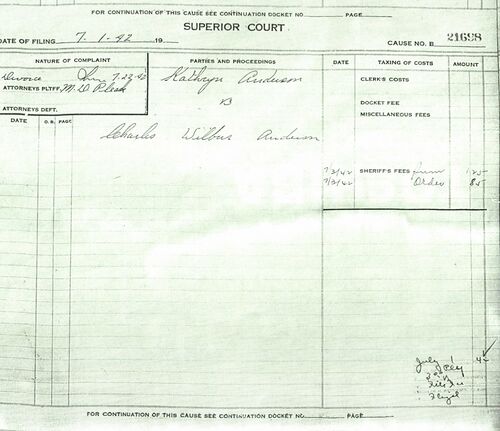 FOR CONTINUATION OF THIS CAUSE SEE CONTINUATION DOCKET NO PAGE
SUPERIOR COURT
DATE OF FILING 7-1-42 19
CAUSE NO. B 21698
NATURE OF COMPLAINT
PARTIES AND PROCEEDINGS
DATE
TAXING OF COSTS
AMOUNT
Divorce 7-23-42
Kathryn Anderson
CLERK'S COSTS
ATTORNEYS PLTFF. M. D.
vs
DOCKET FEE
ATTORNEYS DEFT.
MISCELLANEOUS FEES
DATE O.B. PAGE
Charles Wilbur Anderson
7/3/42 SHERIFF'S FEES 1.25
7/3/42 Order 85
July
FOR CONTINUATION OF THIS CAUSE SEE CONTINUATION DOCKET NO PAGE